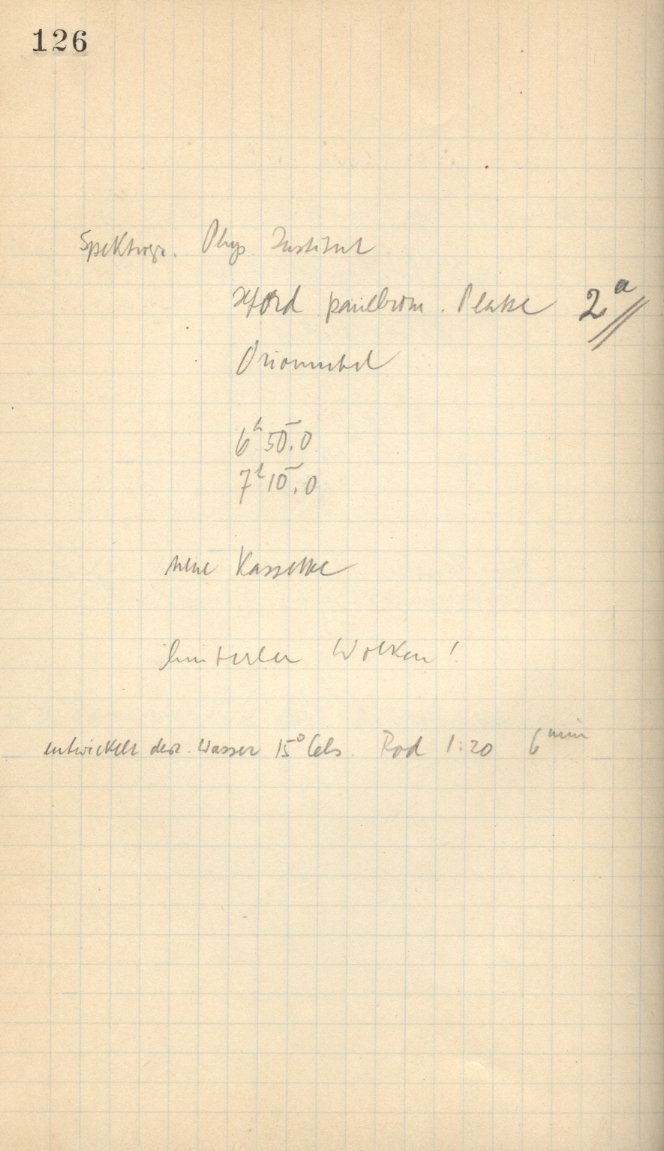 126
Spektrogr. Phys Institut
Ilford panchrom. Platte 2a
Orionnebel
6h 50.0
7h 10.0
neue Kassette
Wolken!
entwickelt dest. Wasser 15° Cels. Rod 1:20 6min